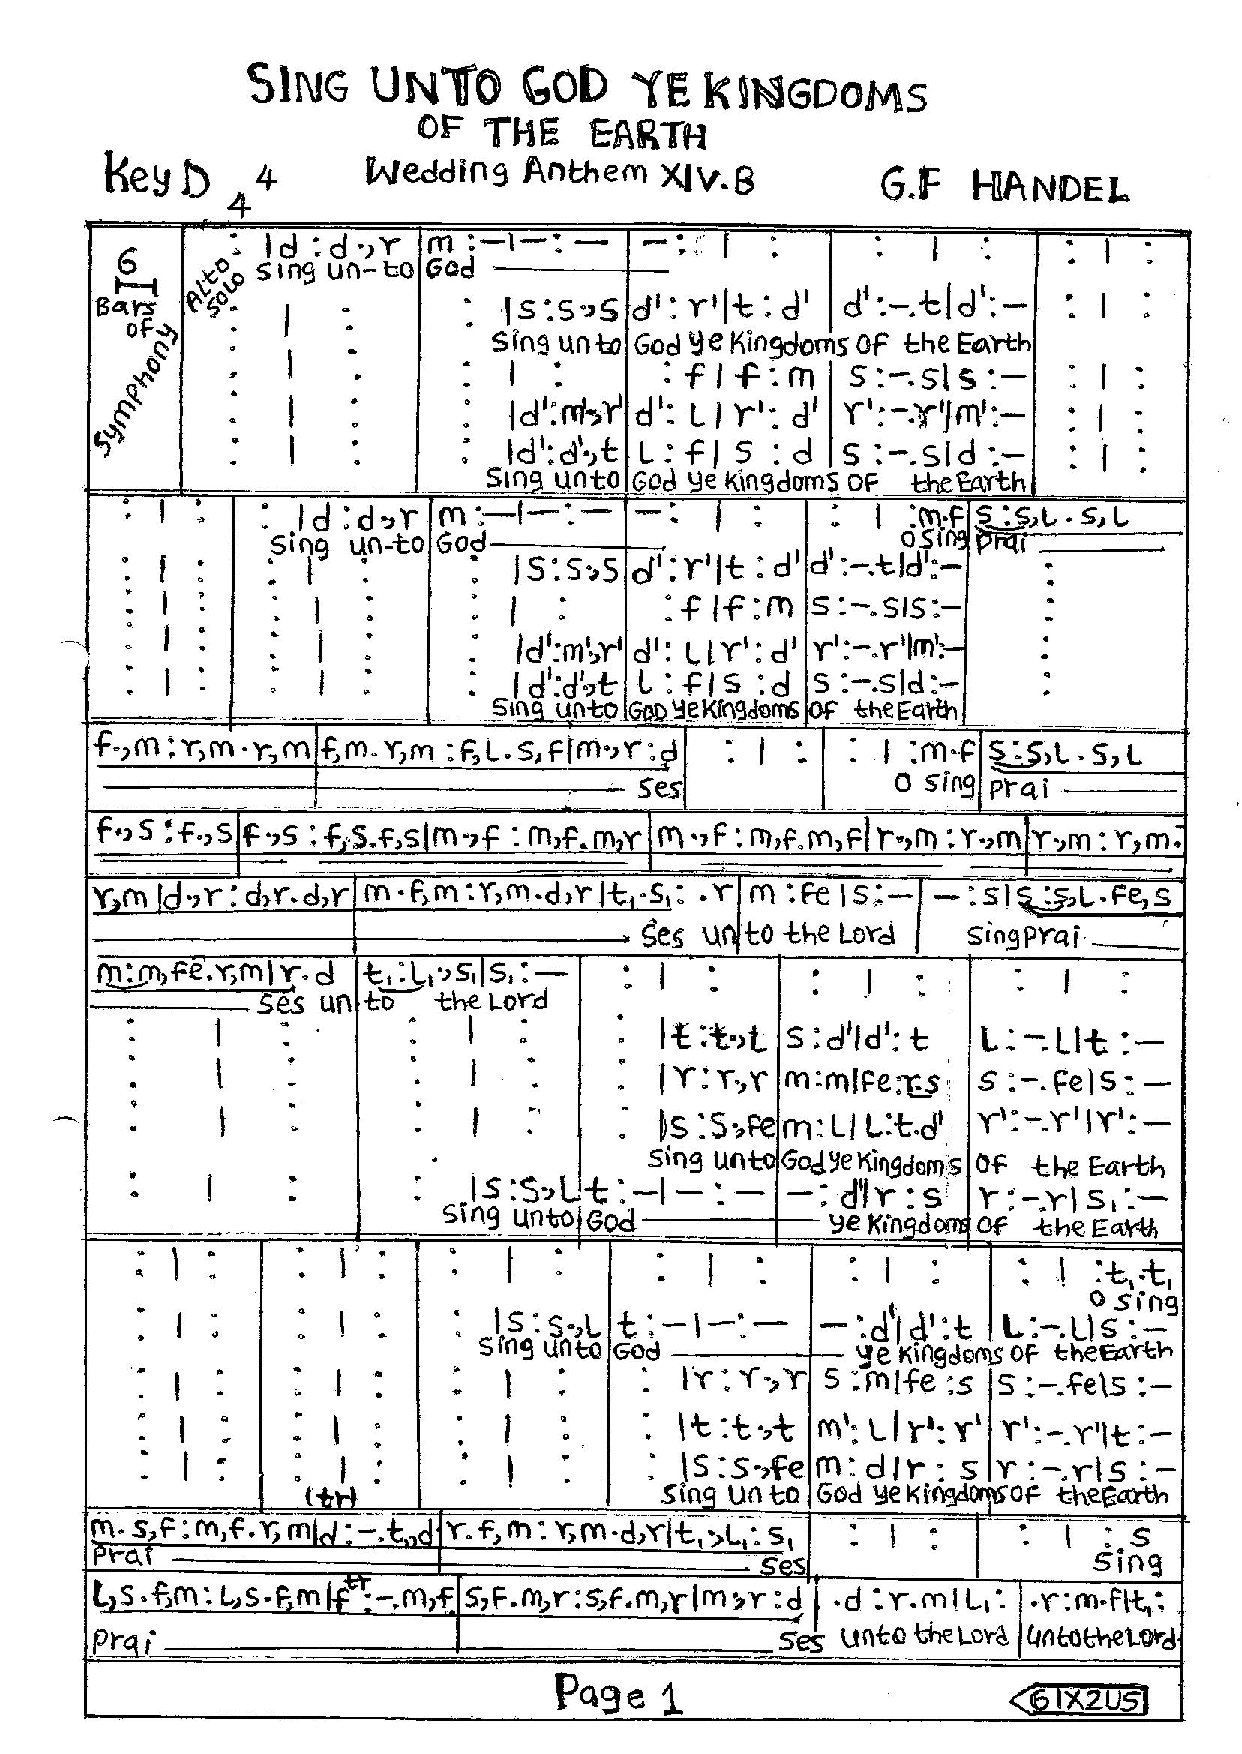 SING UNTO GOD YE KINGDOMS
OF THE EARTH
Key D 4/4 Wedding Anthem XIV.B G.F HANDEL
6 Bars of Symphony
ALTO SOLO : |d :d.,r |m :-|-:- |-: | : | : | : | : | :
Sing un-to God
|s :s.,s |d' : r'|t : d' |d' :-.t|d' :-
Sing unto God ye Kingdoms OF the Earth
: f | f : m | s :-.s|s :-
|d':m'.,r' |d' : L | r' : d' | r' :-.r'|m' :-
|d':d'.,t |L : f | s : d | s :-.s|d :-
Sing unto God ye Kingdoms OF the Earth
: | : | : |d :d.,r |m :-|-:- |-: | : | : | :m.f |s :s,L.s,L
Sing un-to God O Sing Prai
|s :s.,s |d' : r'|t : d' |d' :-.t|d' :-
: f | f : m | s :-.s|s :-
|d':m'.,r' |d' : L | r' : d' | r' :-.r'|m' :-
|d':d'.,t |L : f | s : d | s :-.s|d :-
Sing unto God ye Kingdoms OF the Earth
f.,m : r,m.r,m |f,m.r,m : f,L.s,f |m.,r : d | : | : | : | :m.f |s :s,L.s,L
Ses O Sing Prai
f.,s : f.,s |f.,s : f,s.f,s |m.,f : m,f.m,r |m.,f : m,f.m,f |r.,m : r.,m |r.,m : r,m.
r,m |d.,r : d,r.d,r |m.f,m : r,m.d,r |t₁.s₁ : .r |m :fe|s :- |- :s|s :s,L.fe,s
Ses unto the Lord Sing Prai
m :m,fe.r,m |r.d |t₁ :L₁.,s₁|s₁ :- | : | : | : | : | : | :
Ses unto the Lord
|t :t.,L |s :d'|d' : t |L :-.L|t :-
|r :r.,r |m :m|fe :r.s |s :-.fe|s :-
|s :s.,fe |m : L | L :t.d' |r' :-.r'|r' :-
Sing unto God ye Kingdoms OF the Earth
|s :s.,L |t :-|-:- |- : d'|r : s |r :-.r|s₁ :-
Sing unto God ye Kingdoms OF the Earth
: | : | : | : | : | : | : | : | : | : | : | :t₁.t₁
O Sing
|s :s.,L |t :-|-:- |- :d'|d' :t |L :-.L|s :-
Sing unto God ye Kingdoms OF the Earth
|r : r.,r |s :m|fe :s |s :-.fe|s :-
|t :t.,t |m' : L | r' : r' |r' :-.r'|t :-
|s :s.,fe |m : d | r : s |r :-.r|s :-
Sing unto God ye Kingdoms OF the Earth
(tr)
m.s,f : m,f.r,m |d :-.t₁,d |r.f,m : r,m.d,r |t₁.,L₁ : s₁ | : | : | : | : .s
Prai Ses Sing
L,s.f,m : L,s.f,m |f tr :-.m,f |s,f.m,r : s,f.m,r |m.,r : d | .d : r.m | L₁ : | .r : m.f | t₁ :
Prai Ses unto the Lord unto the Lord
Page 1
61X2U5